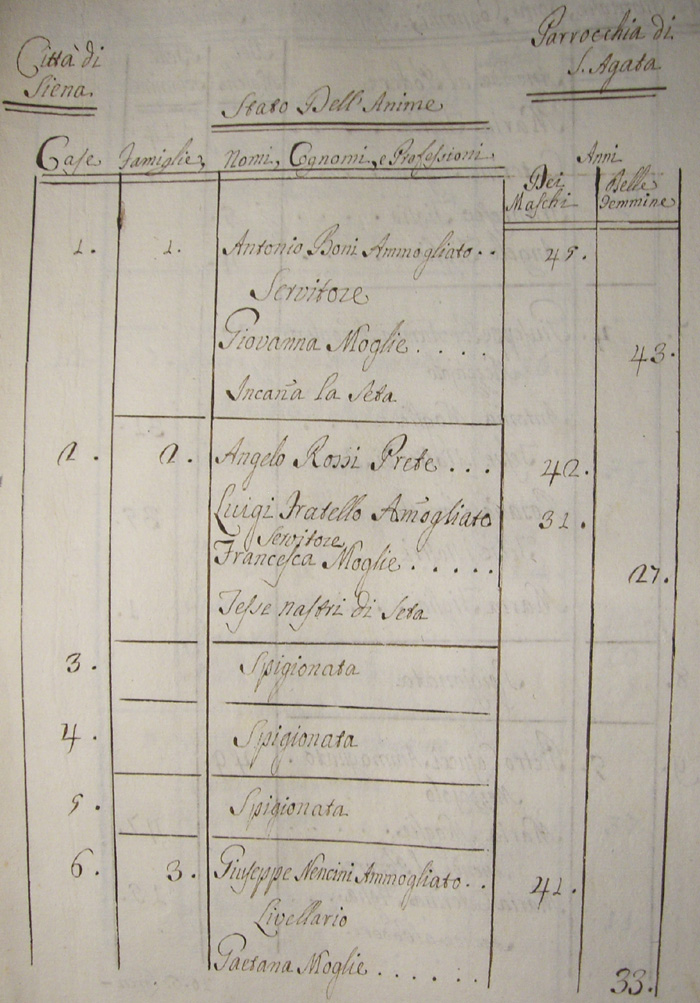 Città di
Siena.
Parrocchia di
S. Agata
Stato Dell'Anime
Case Famiglie, Nomi, Cognomi, e Professioni Anni
Dei
Maschi
Delle
Femmine
1. 1. Antonio Boni Ammogliato . . 45.
Servitore
Giovanna Moglie . . . . 43.
Incaña la Seta
2. 2. Angelo Rossi Prete . . . 42.
Luigi Fratello Am̃ogliato 31.
Servitore
Francesca Moglie . . . . . 27.
Tesse nastri di Seta
3. Spigionata
4. Spigionata
5. Spigionata
6. 3. Giuseppe Nencini Ammogliato . . 41.
Livellario
Gaetana Moglie . . . . . . 33.